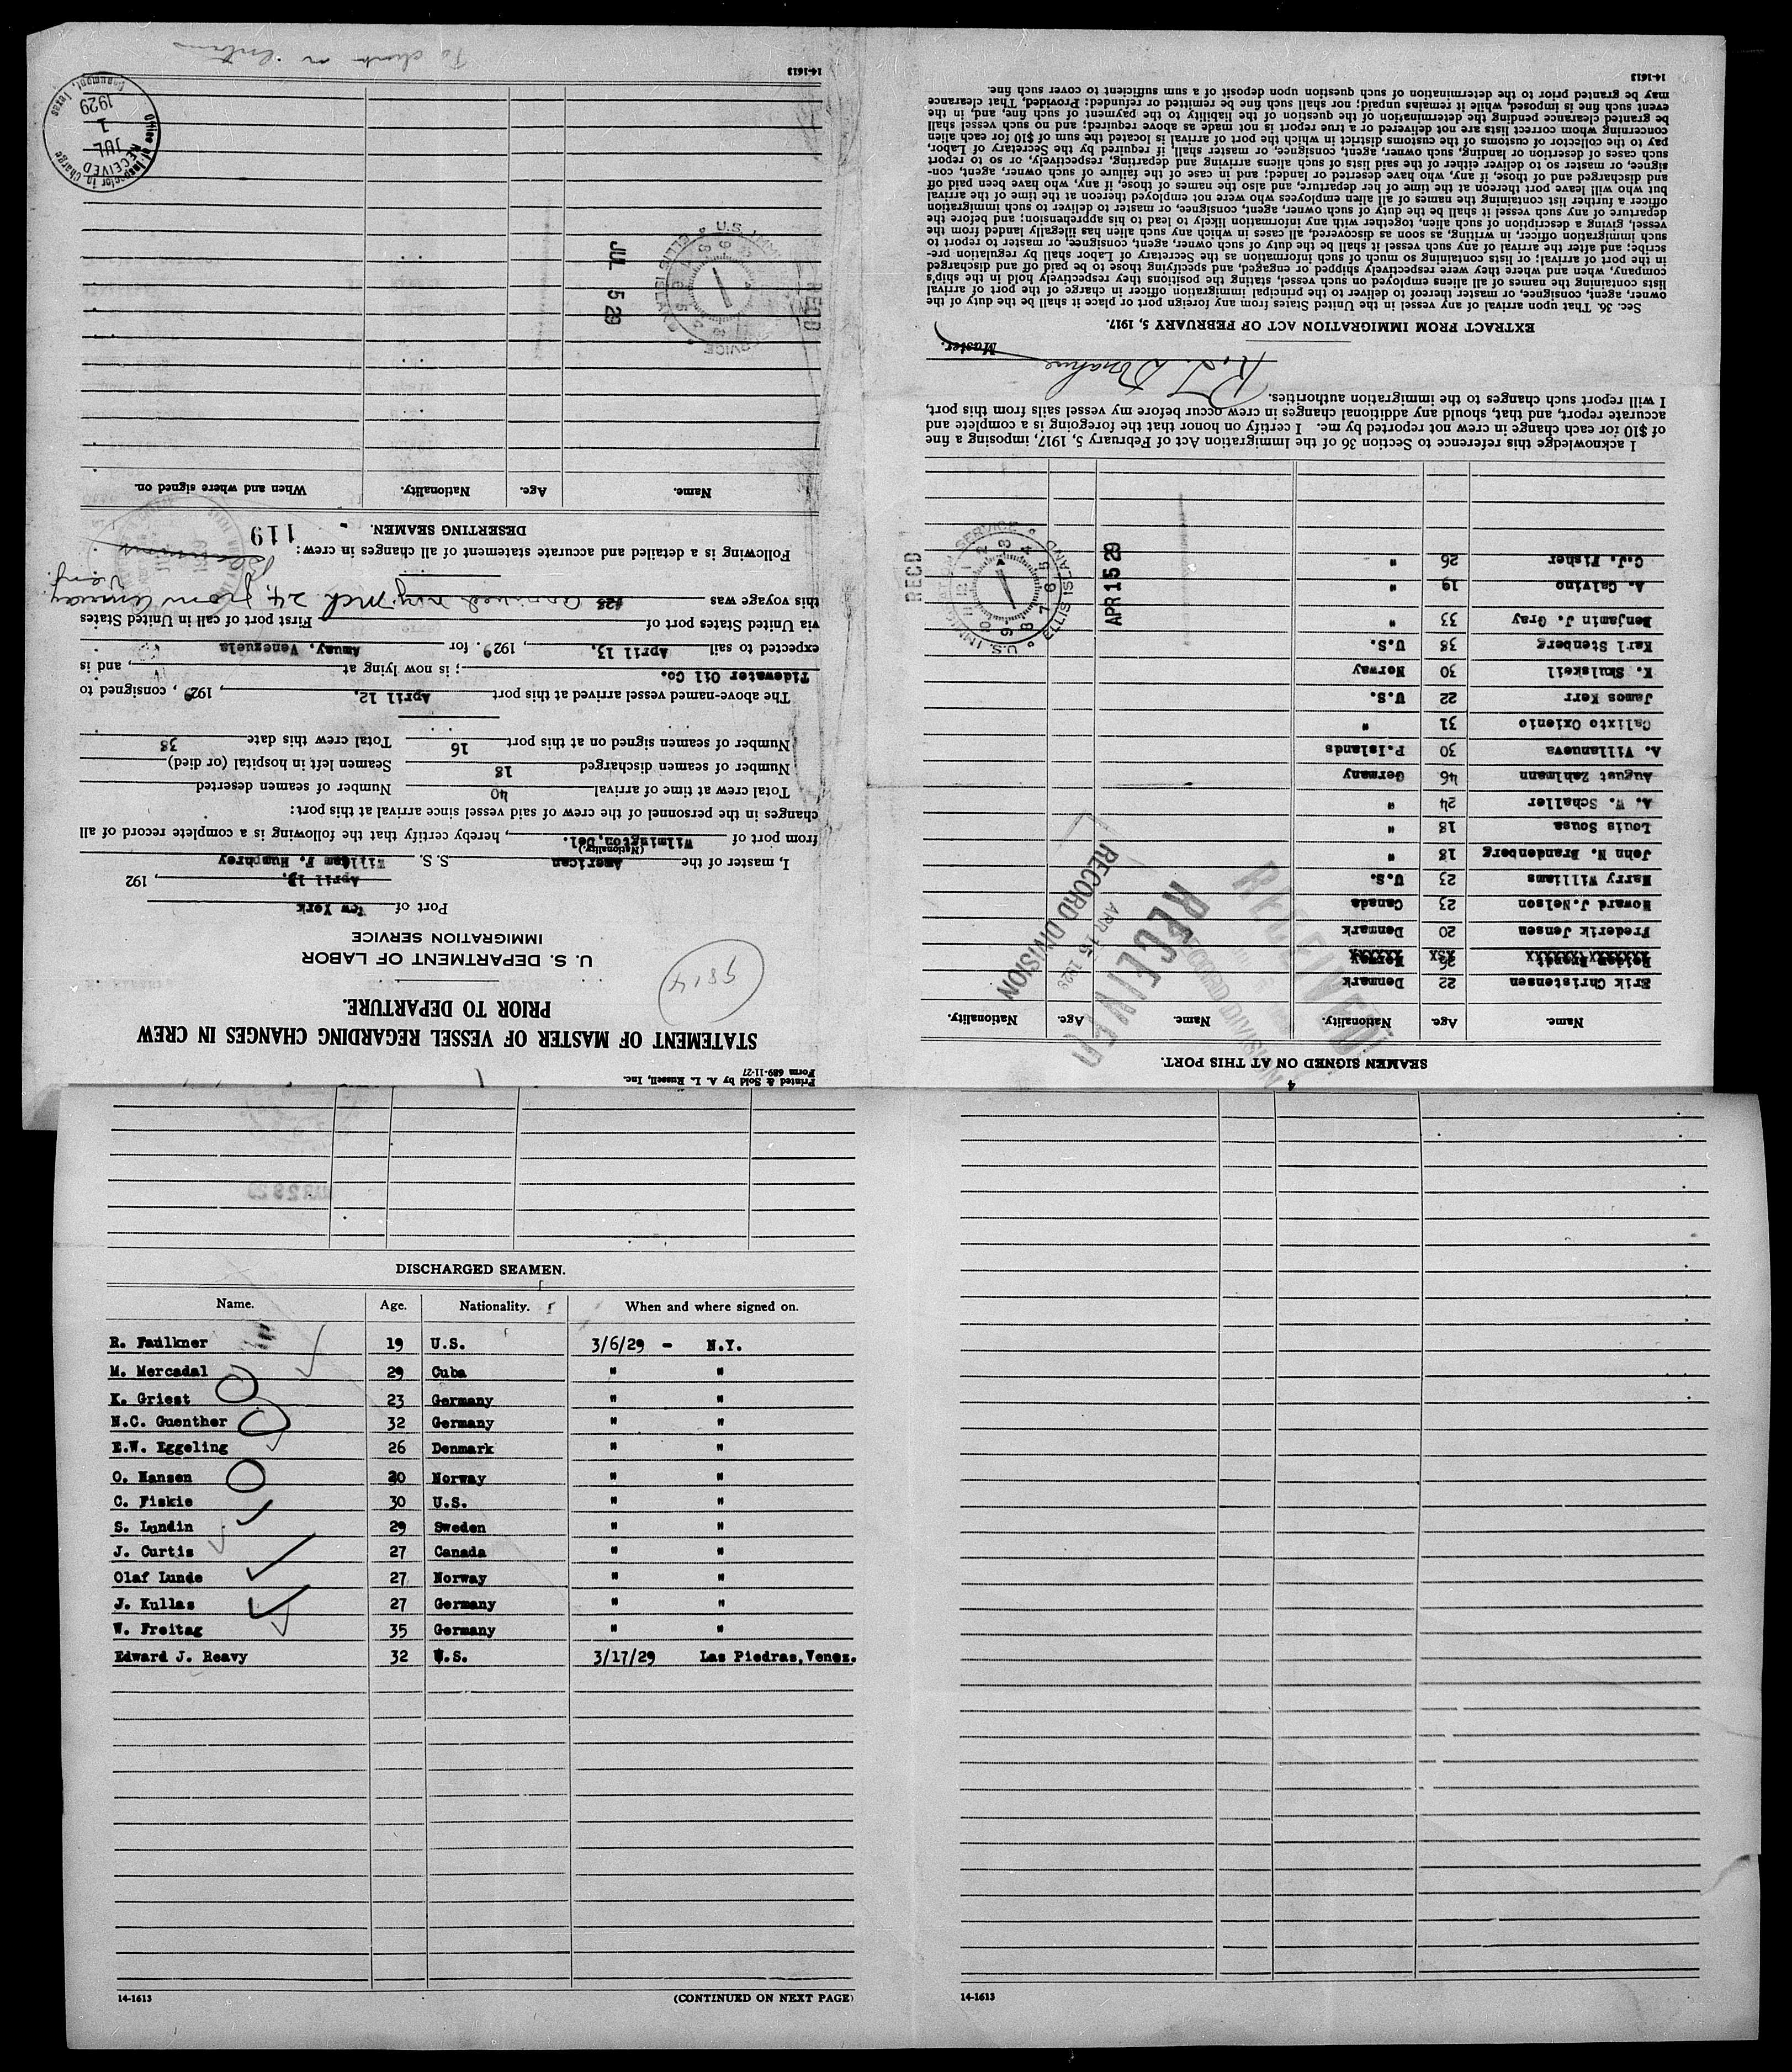 Printed & Sold by A. L. Russell, Inc.
Form 689-11-27
STATEMENT OF MASTER OF VESSEL REGARDING CHANGES IN CREW
PRIOR TO DEPARTURE.
9814
U. S. DEPARTMENT OF LABOR
IMMIGRATION SERVICE
Port of New York
April 13, , 192
I, master of the American S. S. William F. Humphrey
(Nationality.)
from port of Wilmington, Del. , hereby certify that the following is a complete record of all
changes in the personnel of the crew of said vessel since arrival at this port:
Total crew at time of arrival 40 Number of seamen deserted
Number of seamen discharged 18 Seamen left in hospital (or died)
Number of seamen signed on at this port 16 Total crew this date 38
The above-named vessel arrived at this port April 12, , 1929 , consigned to
Tidewater Oil Co. ; is now lying at , and is
expected to sail April 13, , 1929. for Amuay, Venezuela
via United States port of First port of call in United States
this voyage was arrived NY Mch 24 from Amuay
Venz.
Following is a detailed and accurate statement of all changes in crew:
119
DESERTING SEAMEN.
Name. Age. Nationality. When and where signed on.
RECD
U.S. IMMIGRATION SERVICE ELLIS ISLAND
JUL 5 29
Office of Inspector in Charge
RECEIVED
JUL 1 1929
Beaumont, Texas
14-1613
4
SEAMEN SIGNED ON AT THIS PORT.
Name. Age. Nationality. Name. Age. Nationality.
Erik Christensen 22 Denmark
Frederik Jensen 20 Denmark
Howard J. Nelson 23 Canada
Harry Williams 23 U.S.
John N. Brandenberg 18 "
Louis Sousa 18 "
A. W. Schaller 24 "
August Zahlmann 46 Germany
A. Villanueva 30 P.Islands
Calixto Oxienio 31 "
James Kerr 22 U.S.
K. Skulskell 30 Norway
Karl Stenberg 38 U.S.
Benjamin J. Gray 33 "
A. Calvino 19 "
C.J. Fisher 26 "
RECEIVED
APR 15 1929
RECORD DIVISION
RECEIVED
RECORD DIVISION
RECD
U.S. IMMIGRATION SERVICE ELLIS ISLAND
APR 15 29
I acknowledge this reference to Section 36 of the Immigration Act of February 5, 1917, imposing a fine
of $10 for each change in crew not reported by me. I certify on honor that the foregoing is a complete and
accurate report, and that, should any additional changes in crew occur before my vessel sails from this port,
I will report such changes to the immigration authorities.
Donahue
Master.
EXTRACT FROM IMMIGRATION ACT OF FEBRUARY 5, 1917.
Sec. 36. That upon arrival of any vessel in the United States from any foreign port or place it shall be the duty of the
owner, agent, consignee, or master thereof to deliver to the principal immigration officer in charge of the port of arrival
lists containing the names of all aliens employed on such vessel, stating the positions they respectively hold in the ship's
company, when and where they were respectively shipped or engaged, and specifying those to be paid off and discharged
in the port of arrival; or lists containing so much of such information as the Secretary of Labor shall by regulation pre-
scribe; and after the arrival of any such vessel it shall be the duty of such owner, agent, consignee, or master to report to
such immigration officer, in writing, as soon as discovered, all cases in which any such alien has illegally landed from the
vessel, giving a description of such alien, together with any information likely to lead to his apprehension; and before the
departure of any such vessel it shall be the duty of such owner, agent, consignee, or master to deliver to such immigration
officer a further list containing the names of all alien employees who were not employed thereon at the time of the arrival
but who will leave port thereon at the time of her departure, and also the names of those, if any, who have been paid off
and discharged and of those, if any, who have deserted or landed; and in case of the failure of such owner, agent, con-
signee, or master so to deliver either of the said lists of such aliens arriving and departing, respectively, or so to report
such cases of desertion or landing, such owner, agent, consignee, or master shall, if required by the Secretary of Labor,
pay to the collector of customs of the customs district in which the port of arrival is located the sum of $10 for each alien
concerning whom correct lists are not delivered or a true report is not made as above required; and no such vessel shall
be granted clearance pending the determination of the question of the liability to the payment of such fine, and, in the
event such fine is imposed, while it remains unpaid; nor shall such fine be remitted or refunded: Provided, That clearance
may be granted prior to the determination of such question upon deposit of a sum sufficient to cover such fine.
14-1613
DISCHARGED SEAMEN.
Name. Age. Nationality. When and where signed on.
R. Faulkner 19 U.S. 3/6/29 - N.Y.
M. Mercadal 29 Cuba " "
K. Griest 23 Germany " "
N.C. Guenther 32 Germany " "
E.W. Eggeling 26 Denmark " "
O. Hansen 20 Norway " "
C. Fiskie 30 U.S. " "
S. Lundin 29 Sweden " "
J. Curtis 27 Canada " "
Olaf Lunde 27 Norway " "
J. Kullas 27 Germany " "
W. Freitag 35 Germany " "
Edward J. Reavy 32 U.S. 3/17/29 Las Piedras, Venez.
14-1613 (CONTINUED ON NEXT PAGE)
14-1613